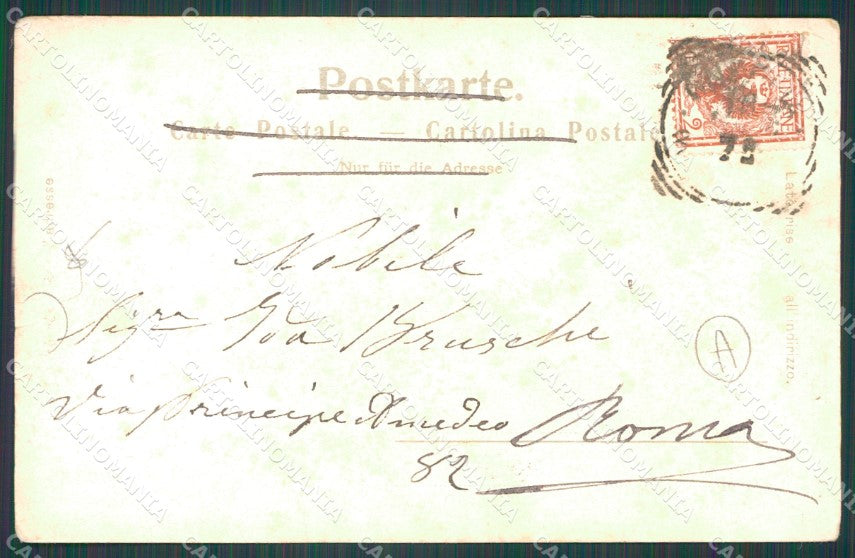 Postkarte.
Carte Postale. — Cartolina Postale
Nur für die Adresse
Nobile
Sig.ra Ida Brusche
Via Principe Amedeo Roma
82
A
72
all'indirizzo.
CARTOLINOMANIA